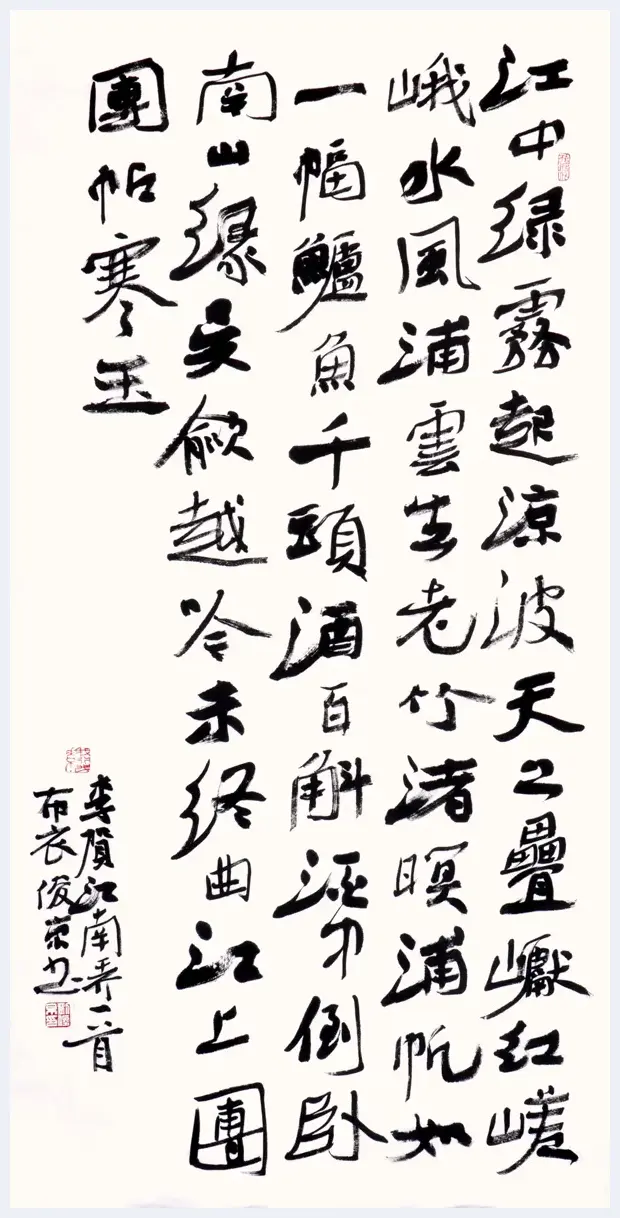 江中绿霧起涼波天上疊巘红嵯
峨水風浦雲生老竹渚暝浦帆如
一幅鱸魚千頭酒百斛酒中倒卧
南山緑吴歈越吟未终曲江上團
團帖寒玉
李賀江南弄一首
布衣俊京书